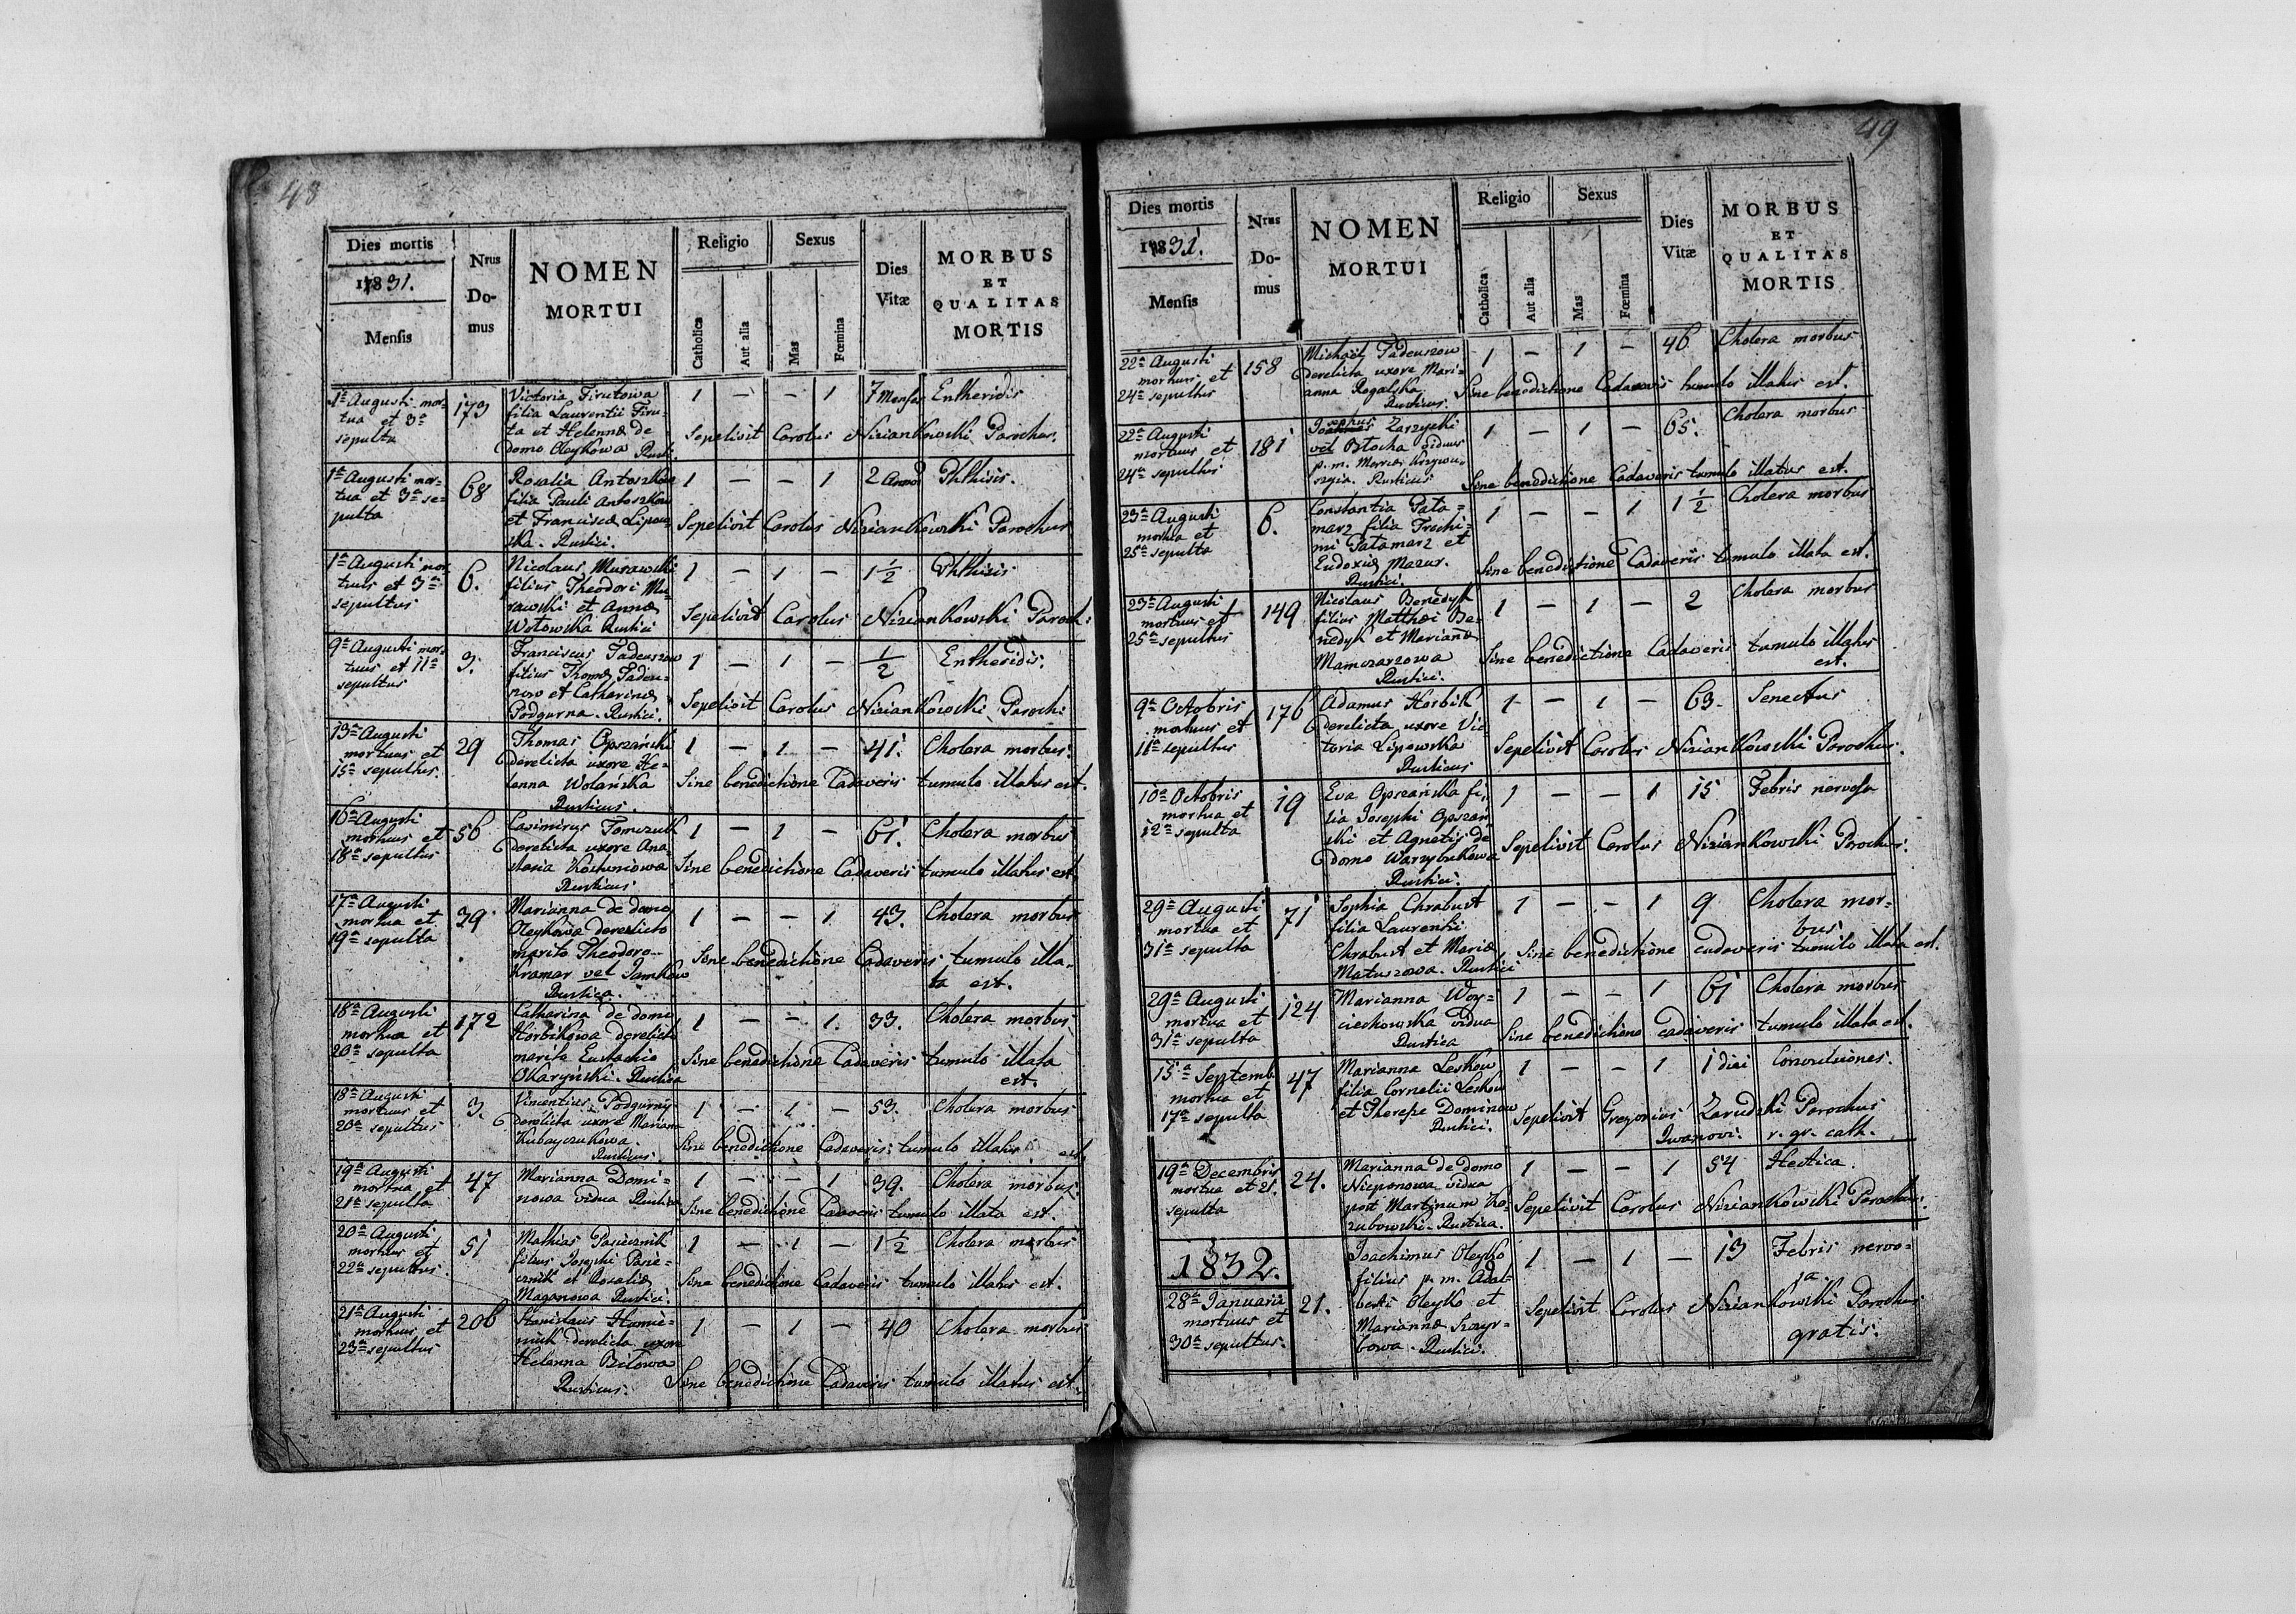 48
Dies mortis
1831.
Mensis
Nrus
Do-
mus
NOMEN
MORTUI
Religio
Catholica
Aut alia
Sexus
Mas
Fœmina
Dies
Vitæ
MORBUS
ET
QUALITAS
MORTIS
1ª Augusti mor-
tua et 3ª
sepulta
173
Victoria Firutowa
filia Laurentii Firu-
ta et Helennæ de
domo Oleykowa Rustici
1 — — 1 7 Mens. Entheridis
Sepelivit Carolus Niziankowski Parochus.
1ª Augusti mor-
tua et 3ª se-
pulta
68
Rosalia Antoszkow
filia Pauli Antoszkow
et Franciscæ Lipow-
ska. Rustici.
1 — — 1 2 Anno Phthisis.
Sepelivit Carolus Niziankowski Parochus
1ª Augusti mor
tuus et 3ª
sepultus
6.
Nicolaus Murawski
filius Theodori Mu-
rawski et Annæ
Wotowska Rustici
1 — 1 — 1½ Phthisis
Sepelivit Carolus Niziankowski Paroch:
9ª Augusti mor-
tuus et 11ª
sepultus
3.
Franciscus Tadeuszow
filius Thomæ Tadeu-
szow et Catharinæ
Podgurna. Rustici.
1 — 1 — ½ Entheridis.
Sepelivit Carolus Niziankowski Paroch:
13ª Augusti
mortuus et
15ª sepultus.
29
Thomas Opszański
derelicta uxore He-
lenna Wolańska
Rusticus.
1 — 1 — 41. Cholera morbus.
Sine benedictione Cadaveris tumulo illatus est.
16ª Augusti
mortuus et
18ª sepultus
56
Casimirus Tomczuk
derelicta uxore Ana-
stasia Kostuniowa
Rusticus
1 — 1 — 61. Cholera morbus
Sine benedictione Cadaveris tumulo illatus est
17ª Augusti
mortua et
19ª sepulta
39.
Marianna de domo
Oleykowa derelicto
marito Theodoro
Kramar vel Jamkow
Rustica.
1 — — 1 43. Cholera morbus
Sine benedictione Cadaveris tumulo illa-
ta est.
18ª Augusti
mortua et
20ª sepulta
172
Catharina de domo
Horbikowa derelicto
marito Eustachio
Okaryński. Rustica
1 — — 1. 33. Cholera morbus
Sine benedictione Cadaveris tumulo illata
est.
18ª Augusti
mortuus et
20ª sepultus
3.
Vincentius Podgurny
derelicta uxore Marianna
Kubayczukowa.
Rusticus.
1 — 1 — 53. Cholera morbus
Sine benedictione Cadaveris tumulo illatus est.
19ª Augusti
mortua et
21ª sepulta
47
Marianna Domi-
nowa vidua Rustica
1 — — 1 39. Cholera morbus
Sine benedictione Cadaveris tumulo illata est.
20ª Augusti
mortuus et
22ª sepultus.
51
Mathias Pasiecznik
filius Josephi Pasie-
cznik et Rosaliæ
Maganowa Rustici.
1 — 1 — 1½ Cholera morbus
Sine benedictione Cadaveris tumulo illatus est.
21ª Augusti
mortuus et
23ª sepultus
206
Stanislaus Humie-
niuk derelicta uxore
Helenna Bilowa
Rusticus.
1 — 1 — 40 Cholera morbus
Sine benedictione Cadaveris tumulo illatus est.
49
Dies mortis
1831.
Mensis
Nrus
Do-
mus
NOMEN
MORTUI
Religio
Catholica
Aut alia
Sexus
Mas
Fœmina
Dies
Vitæ
MORBUS
ET
QUALITAS
MORTIS
22ª Augusti
mortuus et
24ª sepultus
158
Michael Tadeuszow
derelicta uxore Mari-
anna Rogalska.
Rusticus.
1 — 1 — 46 Cholera morbus
Sine benedictione Cadaveris tumulo illatus est.
22ª Augusti
mortuus et
24ª sepultus
181
Josephus Zarzycki
vel Blocha viduus
p. m. Mariæ Krzywu-
szyia. Rusticus
1 — 1 — 65. Cholera morbus
Sine benedictione Cadaveris tumulo illatus est.
23ª Augusti
mortua et
25ª sepulta
6.
Constantia Pata-
marz filia Trochi-
mi Patamarz et
Eudoxiæ Mazur.
Rustici.
1 — — 1 1½ Cholera morbus
Sine benedictione Cadaveris tumulo illata est.
23ª Augusti
mortuus et
25ª sepultus
149
Nicolaus Benedyk
filius Matthæi Be-
nedyk et Mariannæ
Mamczarzowa
Rustici.
1 — 1 — 2 Cholera morbus
Sine benedictione Cadaveris tumulo illatus
est.
9ª Octobris
mortuus et
11ª sepultus
176
Adamus Horbik
derelicta uxore Vic-
toria Lipowska
Rusticus
1 — 1 — 63. Senectus
Sepelivit Carolus Niziankowski Parochus.
10ª Octobris
mortua et
12ª sepulta
19
Eva Opszańska fi-
lia Josephi Opszań-
ski et Agnetis de
domo Warzybukowa
Rustici.
1 — — 1 15 Febris nervosa
Sepelivit Carolus Niziankowski Parochus.
29ª Augusti
mortua et
31ª sepulta
71
Sophia Chrabust
filia Laurentii
Chrabust et Mariæ
Matuszowa. Rustici
1 — — 1 9 Cholera mor-
bus
Sine benedictione cadaveris tumulo illata est.
29ª Augusti
mortua et
31ª sepulta
124
Marianna Woy-
ciechowska vidua
Rustica
1 — — 1 61 Cholera morbus
Sine benedictione cadaveris tumulo illata est.
15ª Septemb.
mortua et
17ª sepulta
47
Marianna Leskow
filia Cornelii Leskow
et Theresæ Dominow
Rustici.
1 — — 1 1 diei Convulsiones.
Sepelivit Gregorius Zarudzki Parochus
Iwanovi. r. gr. cath.
19ª Decembris
mortua et 21.
sepulta
24.
Marianna de domo
Nieponowa vidua
post Martinum Ko-
zubowski. Rustica.
1 — — 1 54 Hectica.
Sepelivit Carolus Niziankowski Parochus.
1832.
28ª Januarii
mortuus et
30ª sepultus.
21.
Joachimus Oleyko
filius p. m. Adal-
berti Oleyko et
Mariannæ Szczyr-
bowa. Rustici.
1 — 1 — 13 Febris nervo-
sa.
Sepelivit Carolus Niziankowski Parochus
gratis.